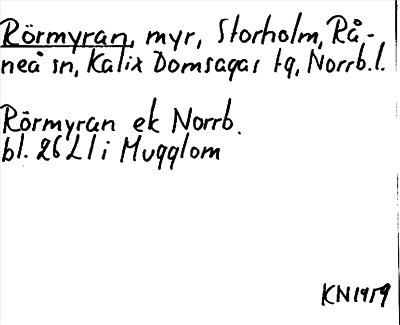 Rörmyran, myr, Storholm, Rå-
neå sn, Kalix Domsagas tg, Norrb.l.
Rörmyran ek Norrb.
bl. 26 L1 i Mugglom
KN1959